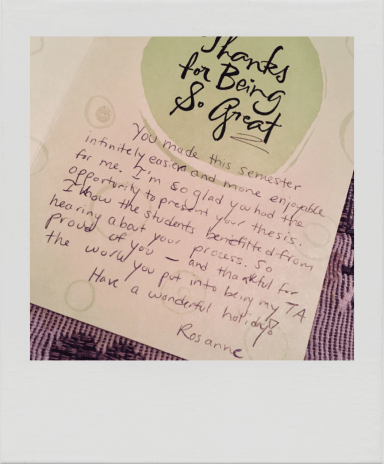 Thanks
for Being
So Great
You made this semester
infinitely easier and more enjoyable
for me. I'm so glad you had the
opportunity to present your thesis.
I know the students benefitted from
hearing about your process. So
proud of you — and thankful for
the world you put into being my TA
Have a wonderful holiday!
Rosanne